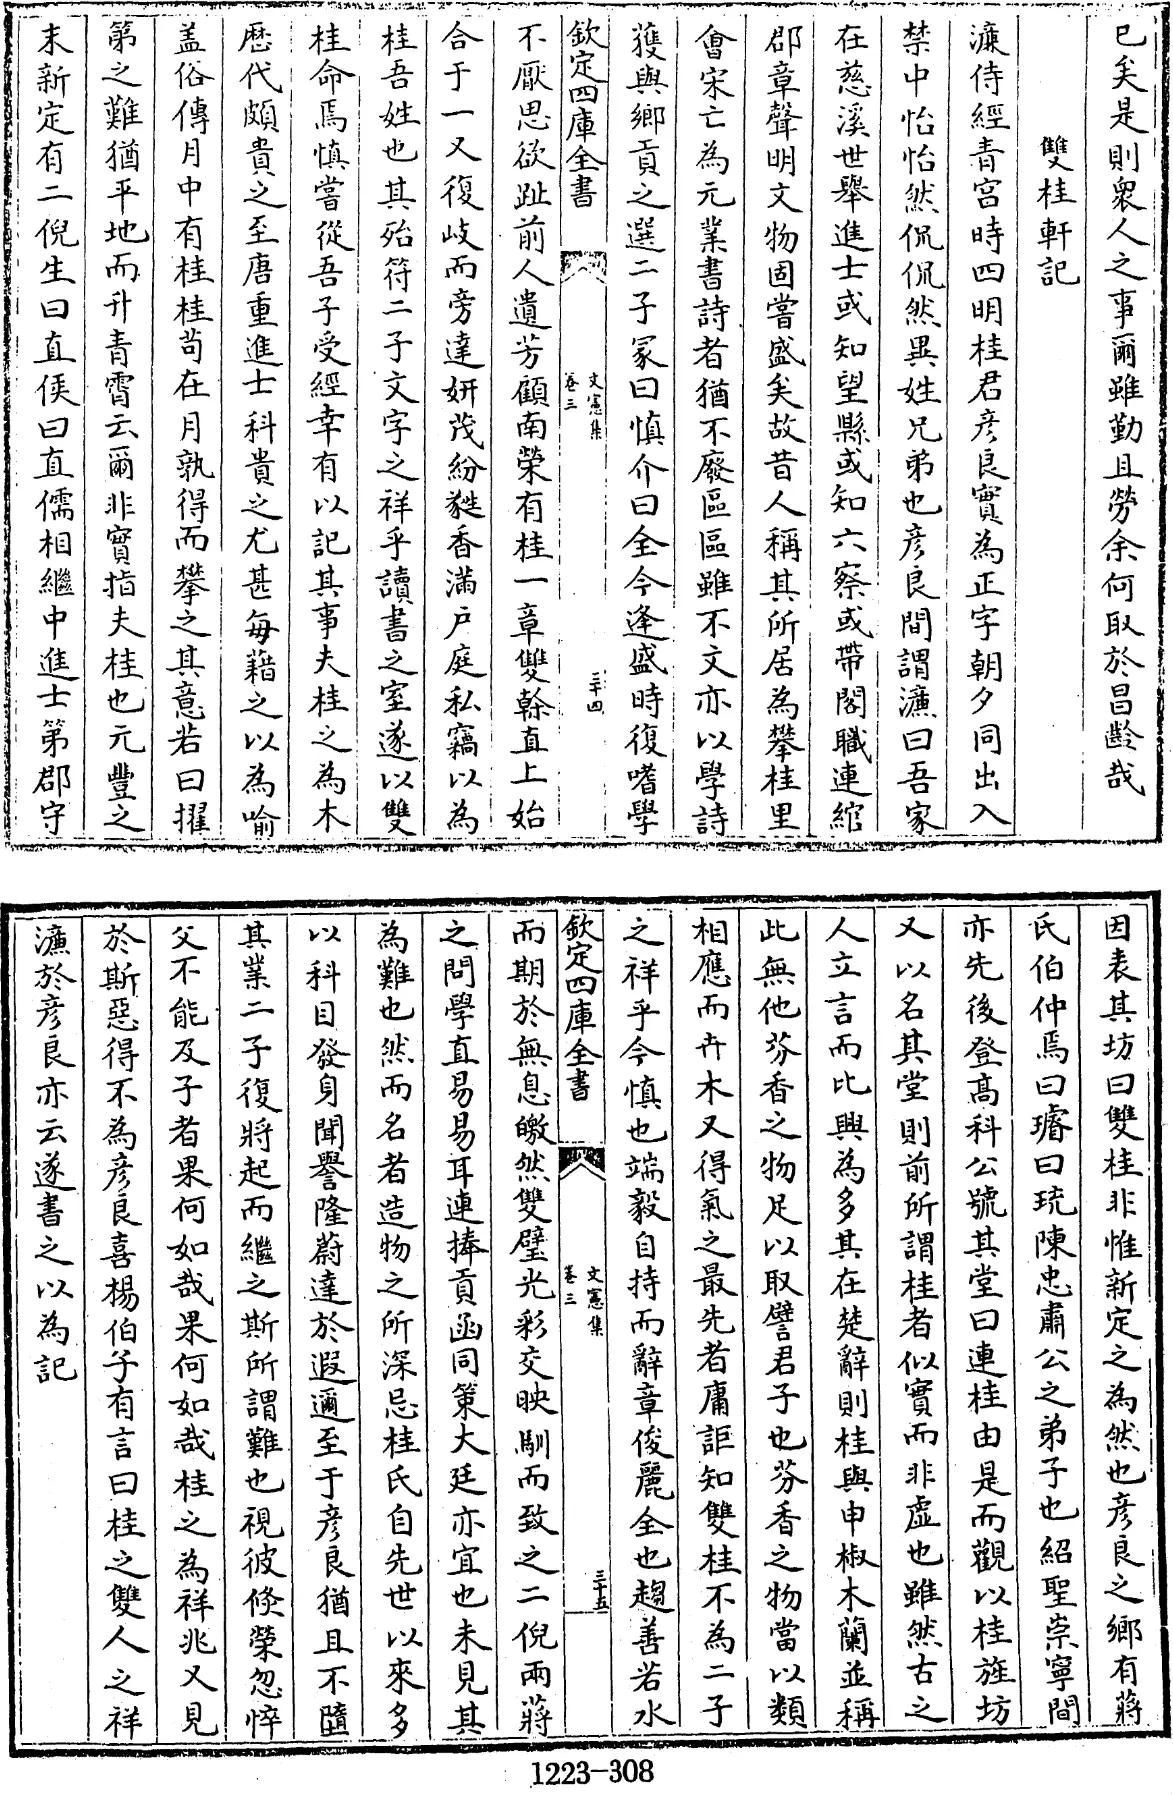 已矣是則衆人之事爾雖勤且勞余何取於昌齡哉
雙桂軒記
濂侍經青宮時四明桂君彦良實為正字朝夕同出入
禁中怡怡然侃侃然異姓兄弟也彦良間謂濂曰吾家
在慈溪世舉進士或知望縣或知六察或帶閣職連綰
郡章聲明文物固嘗盛矣故昔人稱其所居為攀桂里
㑹宋亡為元業書詩者猶不廢區區雖不文亦以學詩
獲與鄉貢之選二子冡曰慎介曰全今逢盛時復嗜學
欽定四庫全書
文憲集
卷三
三十四
不厭思欲趾前人遺芳顧南榮有桂一章雙榦直上始
合于一又復岐而旁達妍茂紛㽔香滿戸庭私竊以為
桂吾姓也其殆符二子文字之祥乎讀書之室遂以雙
桂命焉慎嘗從吾子受經幸有以記其事夫桂之為木
歴代頗貴之至唐重進士科貴之尤甚每藉之以為喻
盖俗傳月中有桂桂苟在月孰得而攀之其意若曰擢
第之難猶平地而升青霄云爾非實指夫桂也元豐之
末新定有二倪生曰直侯曰直儒相繼中進士第郡守
因表其坊曰雙桂非惟新定之為然也彦良之鄉有蔣
氏伯仲焉曰璿曰珫陳忠肅公之弟子也紹聖崇寧間
亦先後登髙科公號其堂曰連桂由是而觀以桂旌坊
又以名其堂則前所謂桂者似實而非虛也雖然古之
人立言而比興為多其在楚辭則桂與申椒木蘭並稱
此無他芬香之物足以取譬君子也芬香之物當以類
相應而卉木又得氣之最先者庸詎知雙桂不為二子
之祥乎今慎也端毅自持而辭章俊麗全也趨善若水
欽定四庫全書
文憲集
卷三
三十五
而期於無息皦然雙璧光彩交映馴而致之二倪兩蔣
之問學直易易耳連捧貢函同策大廷亦宜也未見其
為難也然而名者造物之所深忌桂氏自先世以來多
以科目發身聞譽隆蔚達於遐邇至于彦良猶且不隨
其業二子復將起而繼之斯所謂難也視彼倐榮忽悴
父不能及子者果何如哉果何如哉桂之為祥兆又見
於斯惡得不為彦良喜楊伯子有言曰桂之雙人之祥
濂於彦良亦云遂書之以為記
1223-308